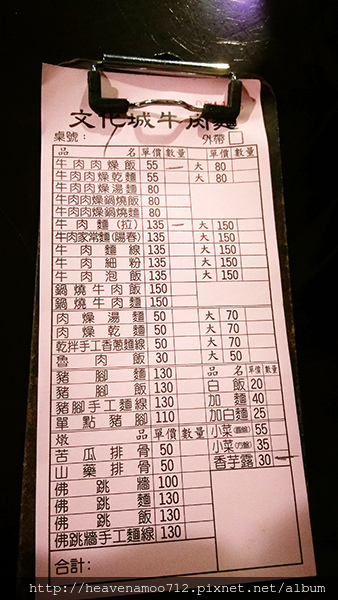 文化城牛肉麵
桌號： 外帶
品名 單價 數量 單價 數量
牛肉肉燥飯 55 大 80
牛肉肉燥乾麵 55 大 80
牛肉肉燥湯麵 80
牛肉肉燥鍋燒飯 80
牛肉肉燥鍋燒麵 80
牛肉麵(拉) 135 大 150
牛肉家常麵(陽春) 135 大 150
牛肉麵線 135 大 150
牛肉細粉 135 大 150
牛肉泡飯 135 大 150
鍋燒牛肉飯 150
鍋燒牛肉麵 150
肉燥湯麵 50 大 70
肉燥乾麵 50 大 70
乾拌手工香蔥麵線 50 大 70
魯肉飯 30 大 50
豬腳麵 130 品名 單價 數量
豬腳飯 130 白飯 20
豬腳手工麵線 130 加麵 40
單點豬腳 110 加白麵 25
燉 單價 數量 小菜(圓盤) 55
苦瓜排骨 50 小菜(方盤) 35
山藥排骨 50 香芋露 30
佛跳牆 100
佛跳麵 130
佛跳飯 130
佛跳牆手工麵線 130
合計：
http://heavenamoo712.pixnet.net/album